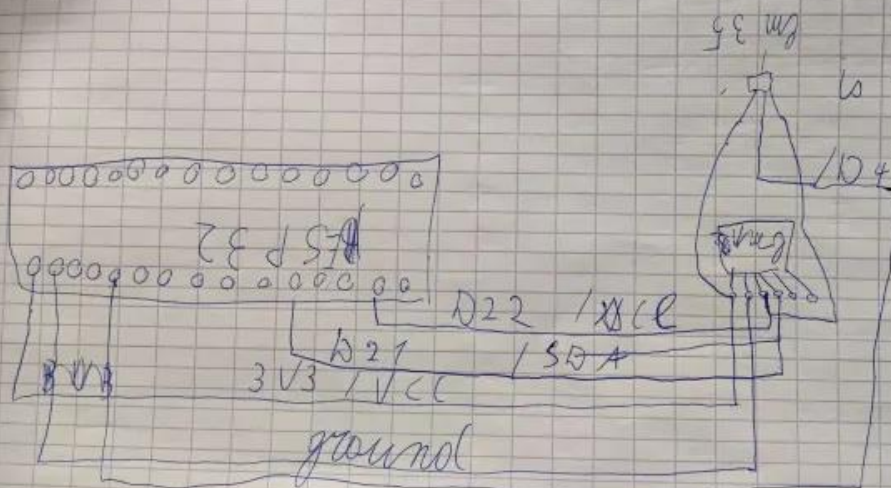 lm 35
D4
ESP 32
D22 / SCL
D21 / SDA
3V3 / VCC
ground